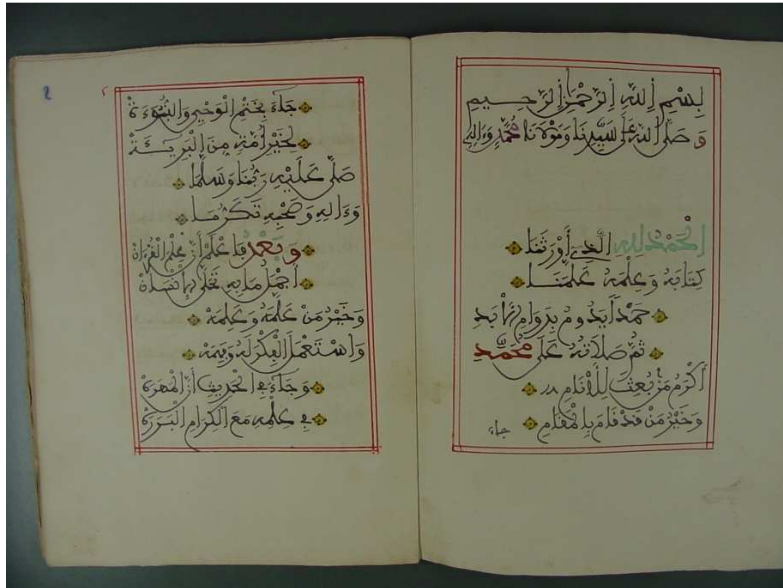 بسم الله الرحمن الرحيم
وصلى الله على سيدنا ومولانا محمد وءاله
الحمد لله الذي أورثنا
كتابه وعلمه علمنا
حمدا يدوم بدوام الأبد
ثم صلاته على محمد
أكرم من بعث للأنام
وخير من قد قام بالمقام
جاء
2
جاء بختم الوحي والنبوءة
لخير أمة من البرية
صلى عليه ربنا وسلما
وءاله وصحبه تكرما
وبعد فاعلم أن علم القرءان
أجمل ما به تحلى الإنسان
وخير من علمه وعلمه
واستعمل الفكر له وفهمه
وجاء في الحديث أن المهرة
في علمه مع الكرام البررة